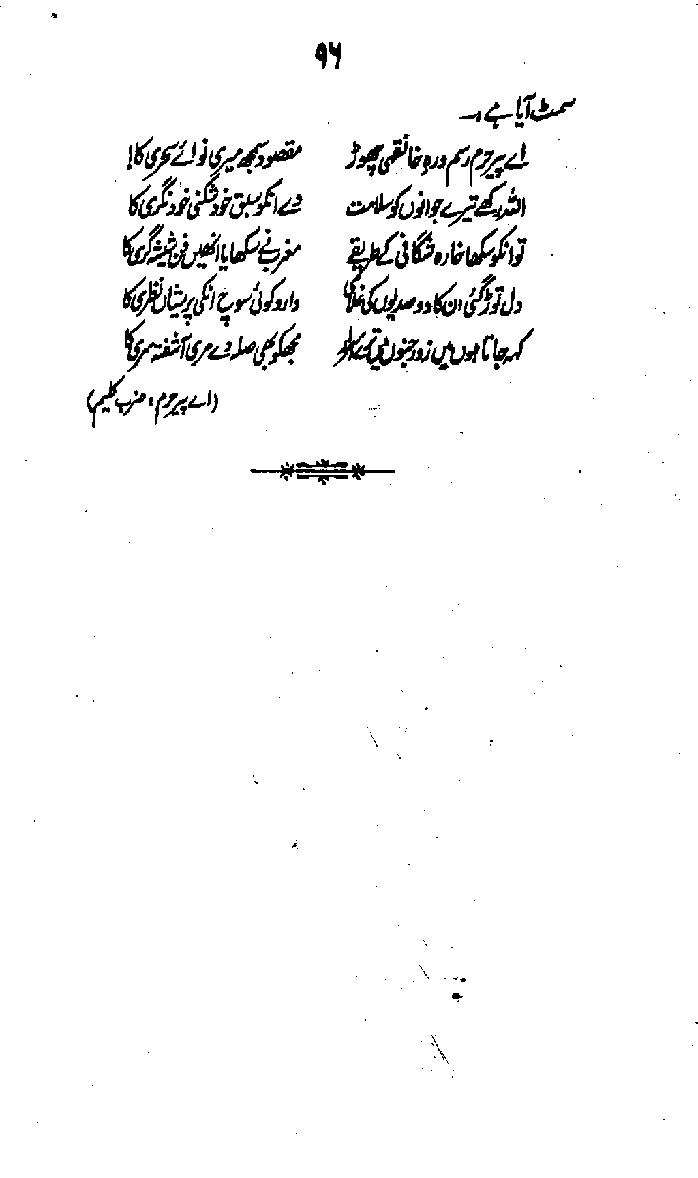 ۹۶
سمٹ آیا ہے :۔
اے پیر حرم رسم و رہِ خانقہی چھوڑ مقصود سمجھ میری نوائے سحری کا!
اللہ رکھے تیرے جوانوں کو سلامت دے انکو سبق خود شکنی خود نگری کا
تو انکو سکھا خارہ شگافی کے طریقے مغرب نے سکھایا انھیں فن شیشہ گری کا
دل توڑ گئی ان کا دو صدیوں کی غلامی دارو کوئی سوچ انکی پریشاں نظری کا
کہہ جاتا ہوں میں زور جنوں میں ترے اسرار مجھکو بھی صلہ دے مری آشفتہ سری کا
(اے پیر حرم، ضرب کلیم)